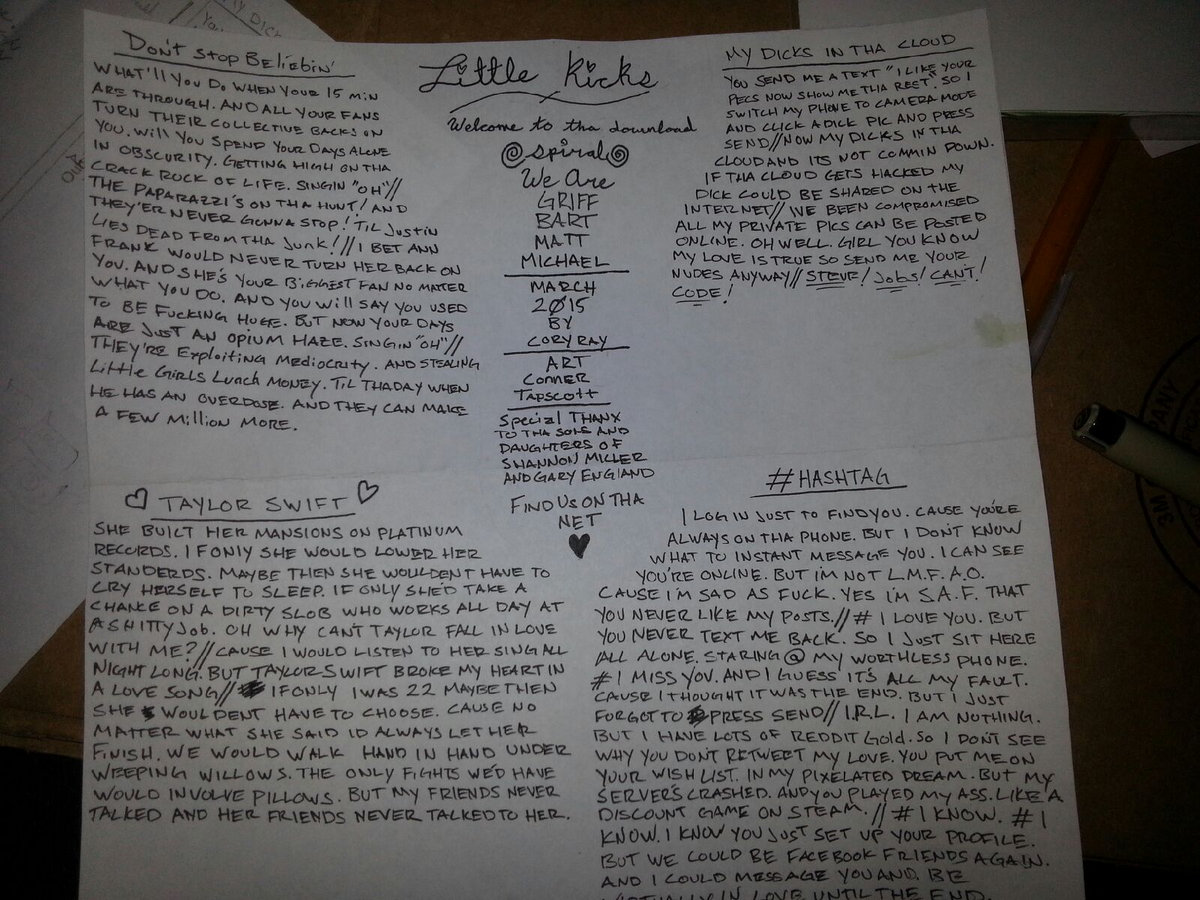 DON'T STOP BELIEBIN'
WHAT'LL YOU DO WHEN YOUR 15 MIN
ARE THROUGH. AND ALL YOUR FANS
TURN THEIR COLLECTIVE BACKS ON
YOU. WILL YOU SPEND YOUR DAYS ALONE
IN OBSCURITY. GETTING HIGH ON THA
CRACK ROCK OF LIFE. SINGIN "OH"//
THE PAPARAZZI'S ON THA HUNT! AND
THEY'ER NEVER GONNA STOP! 'TIL JUSTIN
LIES DEAD FROM THA JUNK!// I BET ANN
FRANK WOULD NEVER TURN HER BACK ON
YOU. AND SHE'S YOUR BIGGEST FAN NO MATTER
WHAT YOU DO. AND YOU WILL SAY YOU USED
TO BE FUCKING HUGE. BUT NOW YOUR DAYS
ARE JUST AN OPIUM HAZE. SINGIN "OH"//
THEY'RE EXPLOITING MEDIOCRITY. AND STEALING
LITTLE GIRLS LUNCH MONEY. TIL THADAY WHEN
HE HAS AN OVERDOSE. AND THEY CAN MAKE
A FEW MILLION MORE.
Little Kicks
Welcome to tha download
@ spiral @
We Are
GRIFF
BART
MATT
MICHAEL
MARCH
2015
BY
CORY RAY
ART
CONNER
TAPSCOTT
SPECIAL THANX
TO THA SONS AND
DAUGHTERS OF
SHANNON MILLER
AND GARY ENGLAND
FIND US ON THA
NET
♥
MY DICKS IN THA CLOUD
YOU SEND ME A TEXT "I LIKE YOUR
PECS NOW SHOW ME THA REST". SO I
SWITCH MY PHONE TO CAMERA MODE
AND CLICK A DICK PIC AND PRESS
SEND//NOW MY DICKS IN THA
CLOUD AND ITS NOT COMMIN DOWN.
IF THA CLOUD GETS HACKED MY
DICK COULD BE SHARED ON THE
INTERNET// IVE BEEN COMPROMISED
ALL MY PRIVATE PICS CAN BE POSTED
ONLINE. OH WELL. GIRL YOU KNOW
MY LOVE IS TRUE SO SEND ME YOUR
NUDES ANYWAY// STEVE! JOBS! CAN'T!
CODE!
♡ TAYLOR SWIFT ♡
SHE BUILT HER MANSIONS ON PLATINUM
RECORDS. IF ONLY SHE WOULD LOWER HER
STANDERDS. MAYBE THEN SHE WOULDENT HAVE TO
CRY HERSELF TO SLEEP. IF ONLY SHE'D TAKE A
CHANCE ON A DIRTY SLOB WHO WORKS ALL DAY AT
A SHITTY JOB. OH WHY CAN'T TAYLOR FALL IN LOVE
WITH ME?// CAUSE I WOULD LISTEN TO HER SING ALL
NIGHT LONG. BUT TAYLOR SWIFT BROKE MY HEART IN
A LOVE SONG// IF ONLY I WAS 22 MAYBE THEN
SHE WOULDENT HAVE TO CHOOSE. CAUSE NO
MATTER WHAT SHE SAID ID ALWAYS LET HER
FINISH. WE WOULD WALK HAND IN HAND UNDER
WEEPING WILLOWS. THE ONLY FIGHTS WE'D HAVE
WOULD INVOLVE PILLOWS. BUT MY FRIENDS NEVER
TALKED AND HER FRIENDS NEVER TALKED TO HER.
#HASHTAG
I LOG IN JUST TO FIND YOU. CAUSE YOU'RE
ALWAYS ON THA PHONE. BUT I DON'T KNOW
WHAT TO INSTANT MESSAGE YOU. I CAN SEE
YOU'RE ONLINE. BUT I'M NOT L.M.F.A.O.
CAUSE I'M SAD AS FUCK. YES I'M S.A.F. THAT
YOU NEVER LIKE MY POSTS//# I LOVE YOU. BUT
YOU NEVER TEXT ME BACK. SO I JUST SIT HERE
ALL ALONE. STARING @ MY WORTHLESS PHONE.
# I MISS YOU. AND I GUESS IT'S ALL MY FAULT.
CAUSE I THOUGHT IT WAS THE END. BUT I JUST
FORGOT TO PRESS SEND// I.R.L. I AM NOTHING.
BUT I HAVE LOTS OF REDDIT GOLD. SO I DON'T SEE
WHY YOU DON'T RETWEET MY LOVE. YOU PUT ME ON
YOUR WISH LIST. IN MY PIXELATED DREAM. BUT MY
SERVER'S CRASHED. AND YOU PLAYED MY ASS. LIKE A
DISCOUNT GAME ON STEAM.// # I KNOW. # I
KNOW. I KNOW YOU JUST SET UP YOUR PROFILE.
BUT WE COULD BE FACEBOOK FRIENDS AGAIN.
AND I COULD MESSAGE YOU AND. BE
VIRTUALLY IN LOVE UNTIL THE END.
3M COMPANY
MY DICK